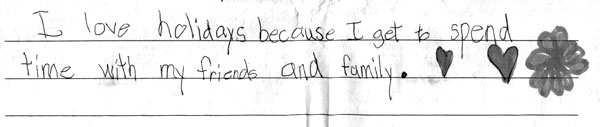 I love holidays because I get to spend
time with my friends and family.